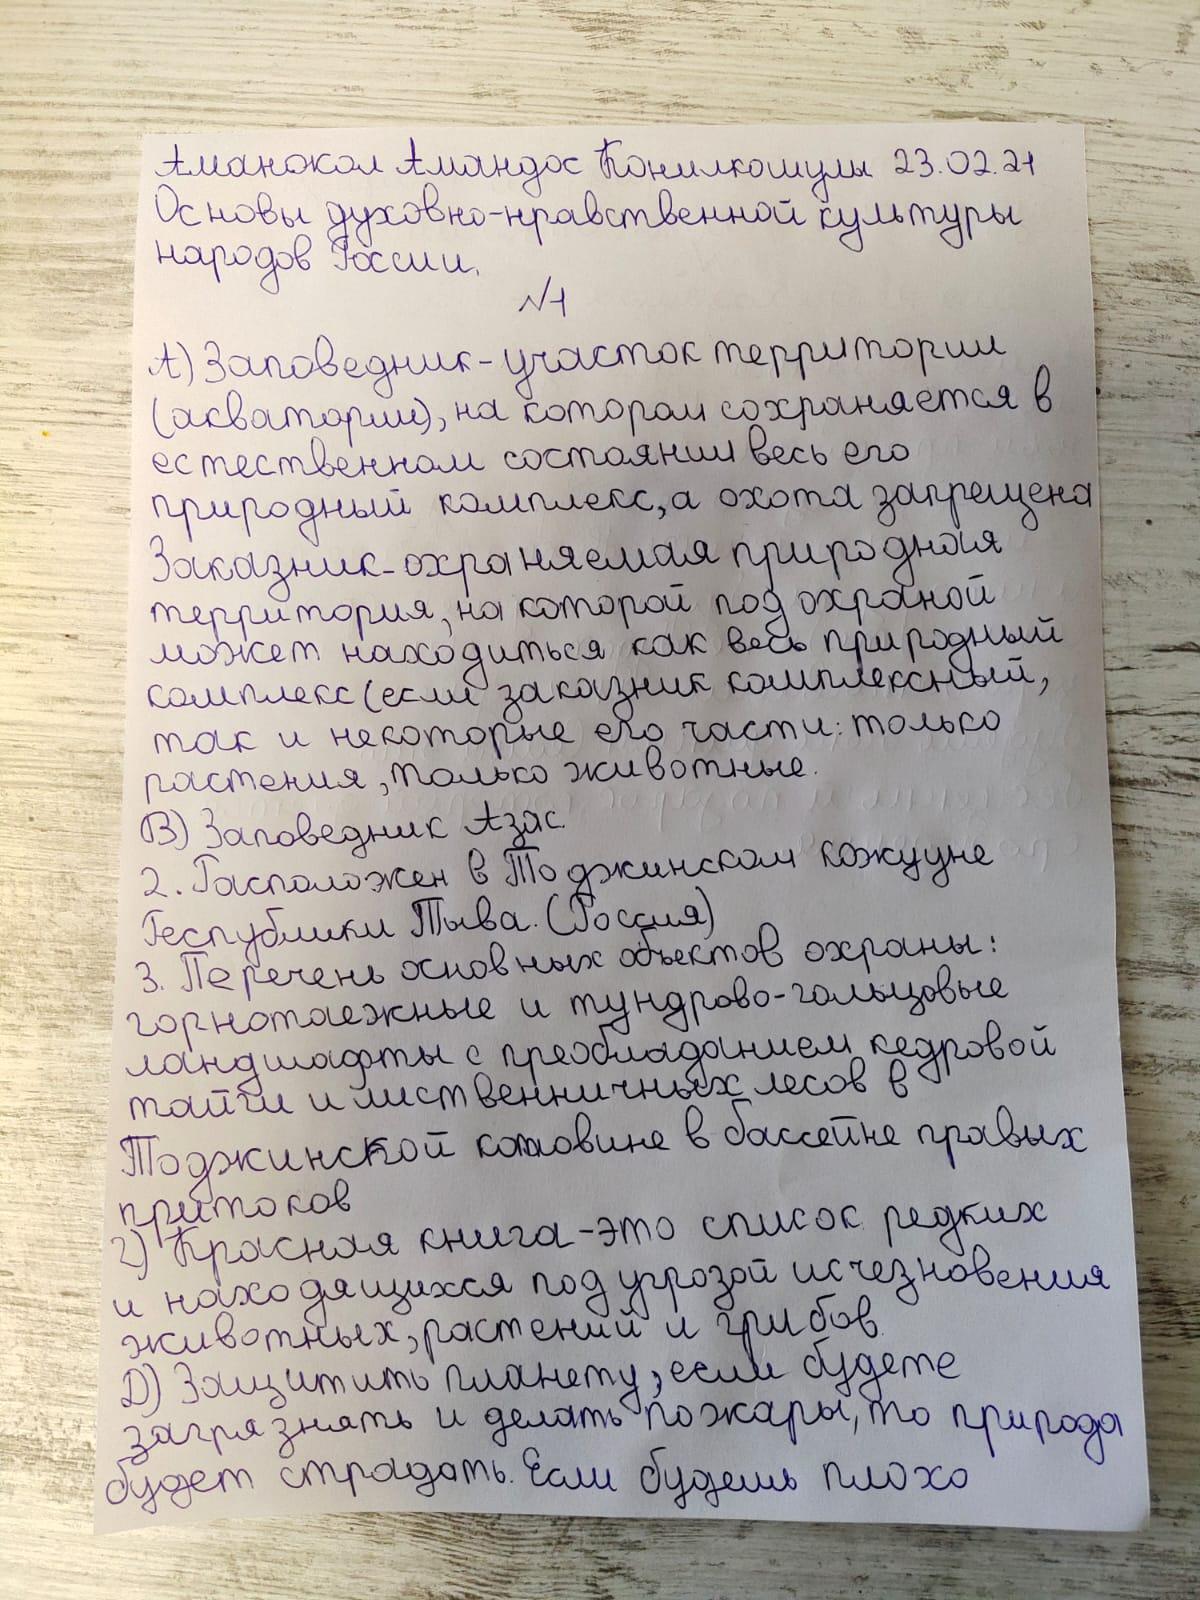 Аманжол Амандос Конилкошулы 23.02.21
Основы духовно-нравственной культуры
народов России.
№1
А) Заповедник-участок территории
(акватории), на котором сохраняется в
естественном состоянии весь его
природный комплекс, а охота запрещена
Заказник-охраняемая природная
территория, на которой под охраной
может находиться как весь природный
комплекс (если заказник комплексный,
так и некоторые его части: только
растения, только животные.
В) Заповедник Азас.
2. Расположен в Тоджинском кожууне
Республики Тыва. (Россия)
3. Перечень основных объектов охраны:
горнотаежные и тундрово-гольцовые
ландшафты с преобладанием кедровой
тайги и лиственничных лесов в
Тоджинской котловине в бассейне правых
притоков
г) Красная книга-это список редких
и находящихся под угрозой исчезновения
животных, растений и грибов.
D) Защитить планету, если будете
загрязнять и делать пожары, то природа
будет страдать. Если будешь плохо